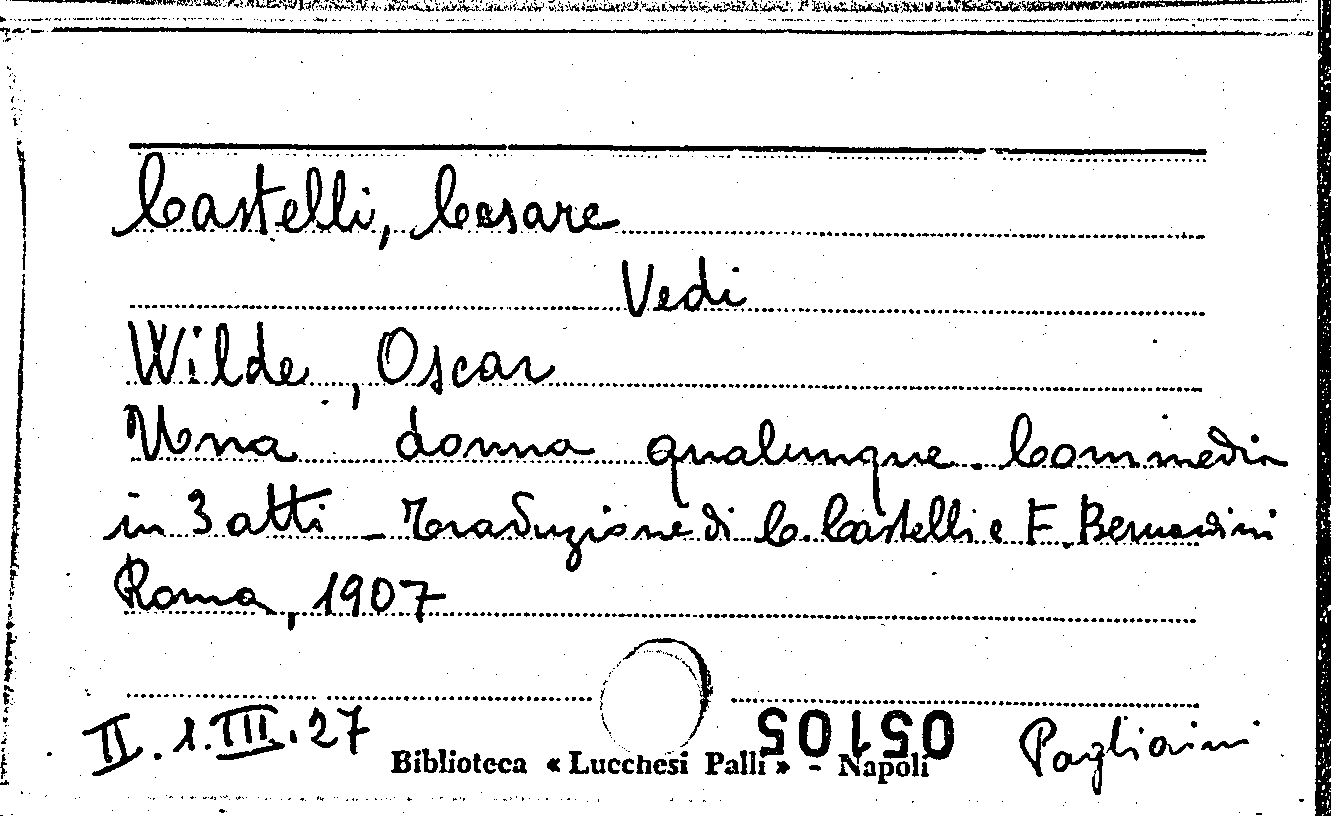 Castelli, Cesare
Vedi
Wilde, Oscar
Una donna qualunque. Commedia
in 3 atti - Traduzione di C. Castelli e F. Bernardini
Roma, 1907
II.1.III.27
05105
Biblioteca « Lucchesi Palli » - Napoli
Pagliaini